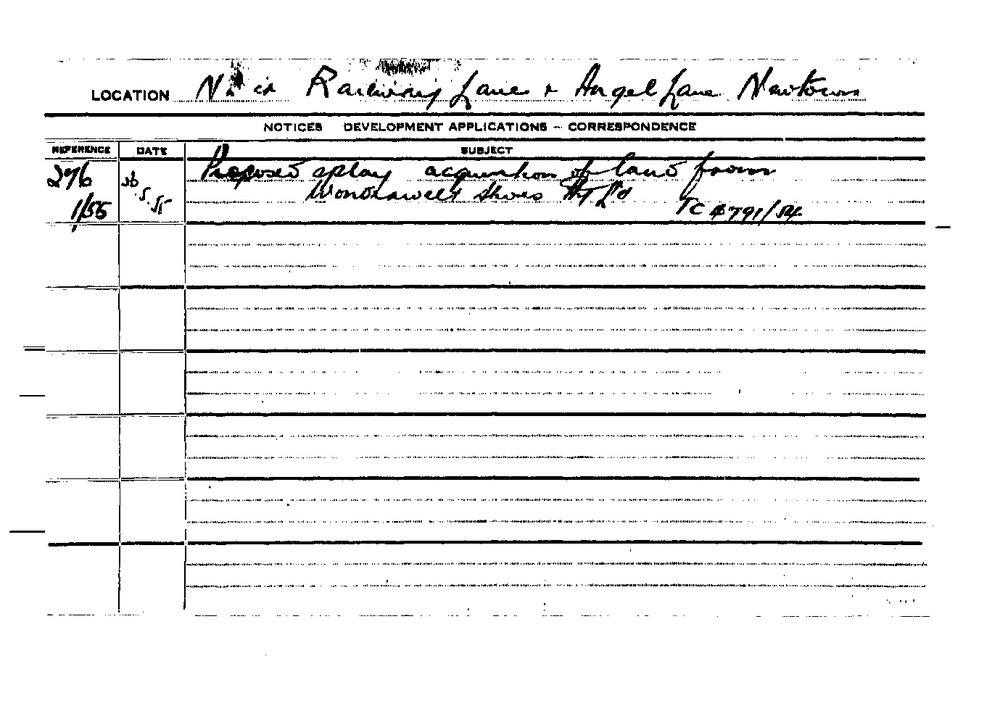 LOCATION Railway Lane & Angel Lane Newtown
NOTICES DEVELOPMENT APPLICATIONS – CORRESPONDENCE
REFERENCE DATE SUBJECT
276 26 Proposed splay acquisition of land from
1/55 .5.55 Wonderwelt Shoes Pty Ltd TC 4791/54